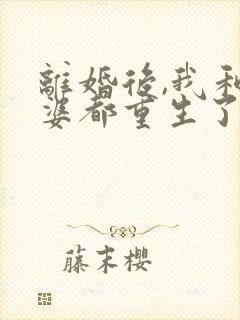 離婚後,我和
婆都重生了
藤末櫻